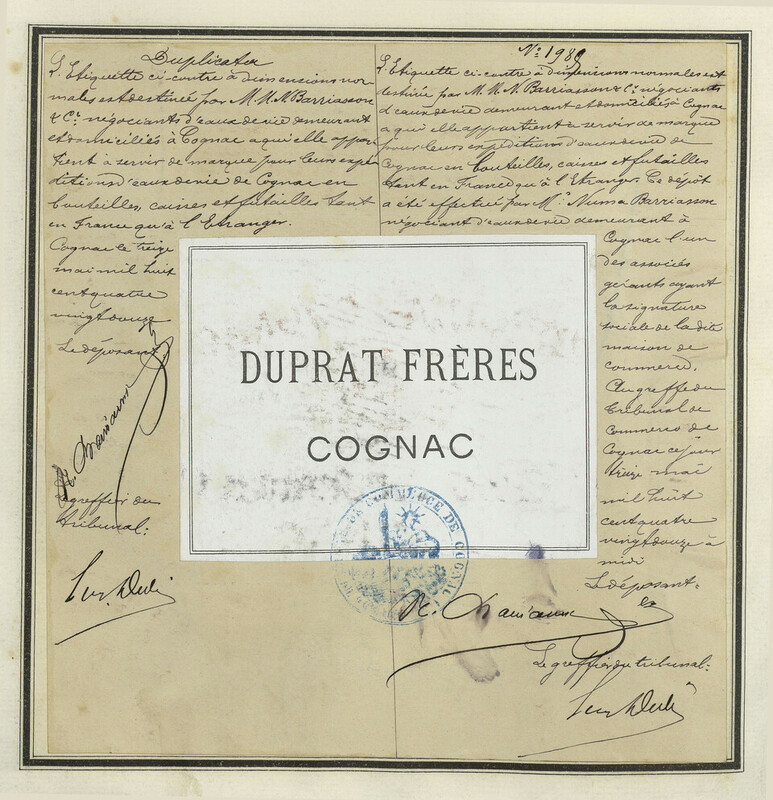 Duplicata
L'Etiquette ci-contre à dimensions nor-
males est destinée par M.M. N Barriasson
& Cie négociants d'eaux de vie demeurant
et domiciliés à Cognac a qui elle appar-
tient à servir de marque pour leurs expé-
ditions d'eaux de vie de Cognac en
bouteilles, caisses et futailles tant
en France qu'à l'Etranger.
Cognac le treize
mai mil huit
cent quatre
vingt douze
Le déposant
Le greffier du
tribunal:
No 1989
L'Etiquette ci-contre à dimensions normales est
destinée par M.M. N Barriasson & Cie négociants
d'eaux de vie demeurant et domiciliés à Cognac
a qui elle appartient à servir de marque
pour leurs expéditions d'eaux de vie de
Cognac en bouteilles, caisses et futailles
tant en France qu'à l'Etranger. Ce dépôt
a été effectué par Mr Numa Barriasson
négociant d'eaux de vie demeurant à
Cognac l'un
des associés
gérants ayant
la signature
sociale de la dite
maison de
commerce.
Au greffe du
tribunal de
Commerce de
Cognac ce jour
treize mai
mil huit
cent quatre
vingt douze à
midi
Le déposant
Le greffier du tribunal:
DUPRAT FRÈRES
COGNAC
COMMERCE DE COGNAC